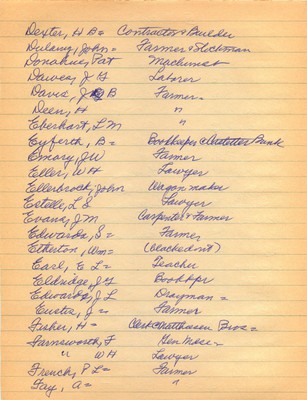 Dexter, H B= Contractor & Builder
Dulany, John= Farmer & Stockman
Donahue, Pat Machinist
Dawes, J G Laborer
Davis, J B Farmer
Deen, H "
Eberhart, L M
Eyferth, B= Bookkeeper Bank
Emary, J W Farmer
Eller, W H Lawyer
Ellerbrock, John Wagon maker
Estelle, L S Lawyer
Evans, J M Carpenter & Farmer
Edwards, S= Farmer
Etherton, Wm= (blacked out)
Earl, E L= Teacher
Eldridge, J G Bookkpr
Edwards, J L Drayman=
Eustice, J= Farmer
Fisher, H= Clerk Matthausen Bros=
Farnsworth, F Gen Mdse=
" W H Lawyer
French, P L= Farmer
Fay, A= "